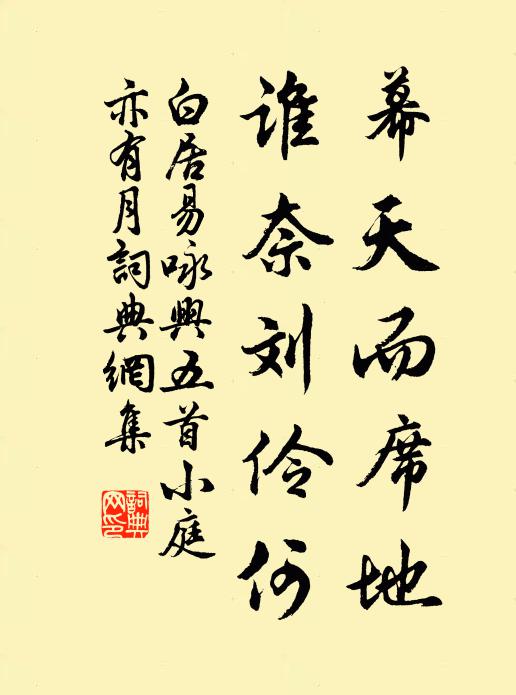 幕天而席地
谁奈刘伶何
白居易咏興五首小庭
亦有月詞典網集
詞典
网印